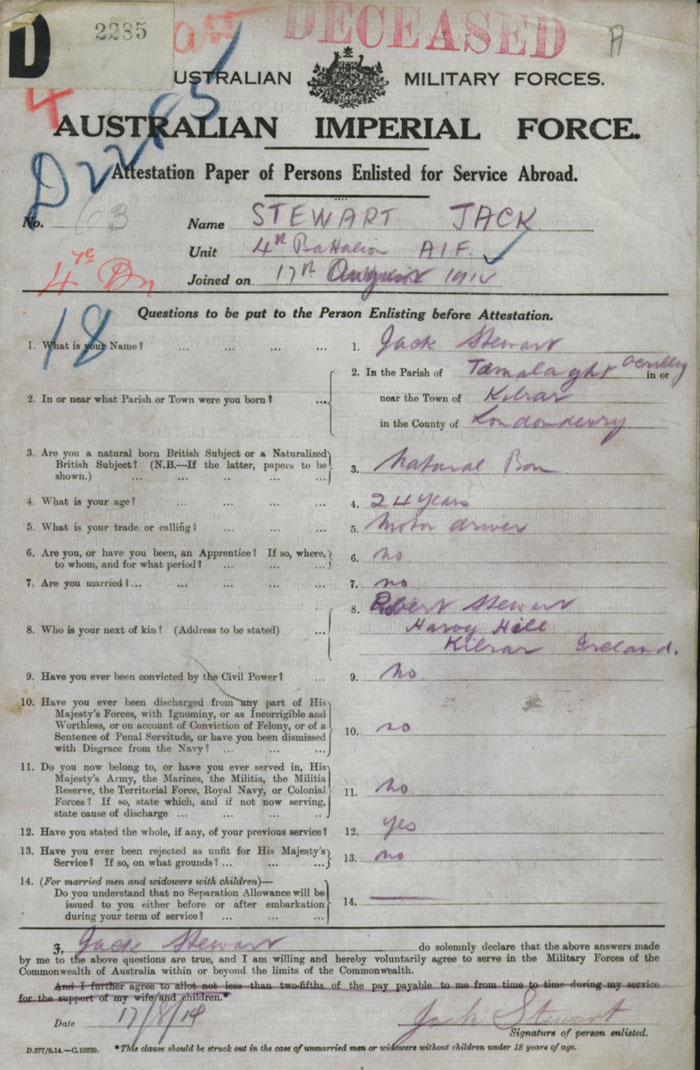 D 2285
DECEASED
A
4
D2285
AUSTRALIAN MILITARY FORCES.
AUSTRALIAN IMPERIAL FORCE.
Attestation Paper of Persons Enlisted for Service Abroad.
No. 63 Name STEWART JACK
Unit 4th Battalion AIF.
4th Bn
Joined on 17th August 1914
18
Questions to be put to the Person Enlisting before Attestation.
1. What is your Name? ... ... ... ... 1. Jack Stewart
2. In or near what Parish or Town were you born? ... 2. In the Parish of Tamalaght Ocrilly in or
near the Town of Kilrar
in the County of Londonderry
3. Are you a natural born British Subject or a Naturalized
British Subject? (N.B.—If the latter, papers to be
shown.) ... ... ... ... ... 3. Natural Born
4. What is your age? ... ... ... ... 4. 24 years
5. What is your trade or calling? ... ... ... 5. Motor driver
6. Are you, or have you been, an Apprentice? If so, where,
to whom, and for what period? ... ... ... 6. no
7. Are you married? ... ... ... ... ... 7. no
8. Who is your next of kin? (Address to be stated) ... 8. Robert Stewart
Harvy Hill
Kilrar Ireland.
9. Have you ever been convicted by the Civil Power? ... 9. No.
10. Have you ever been discharged from any part of His
Majesty's Forces, with Ignominy, or as Incorrigible and
Worthless, or on account of Conviction of Felony, or of a
Sentence of Penal Servitude, or have you been dismissed
with Disgrace from the Navy? ... ... ... 10. no
11. Do you now belong to, or have you ever served in, His
Majesty's Army, the Marines, the Militia, the Militia
Reserve, the Territorial Force, Royal Navy, or Colonial
Forces? If so, state which, and if not now serving,
state cause of discharge ... ... ... ... 11. No
12. Have you stated the whole, if any, of your previous service? 12. yes
13. Have you ever been rejected as unfit for His Majesty's
Service? If so, on what grounds? ... ... ... 13. no
14. (For married men and widowers with children)—
Do you understand that no Separation Allowance will be
issued to you either before or after embarkation
during your term of service? ... ... ... 14.
I, Jack Stewart do solemnly declare that the above answers made
by me to the above questions are true, and I am willing and hereby voluntarily agree to serve in the Military Forces of the
Commonwealth of Australia within or beyond the limits of the Commonwealth.
And I further agree to allot not less than two-fifths of the pay payable to me from time to time during my service
for the support of my wife and children.*
Date 17/8/14 Jack Stewart
Signature of person enlisted.
D.377/8.14.—C.10230. *This clause should be struck out in the case of unmarried men or widowers without children under 18 years of age.